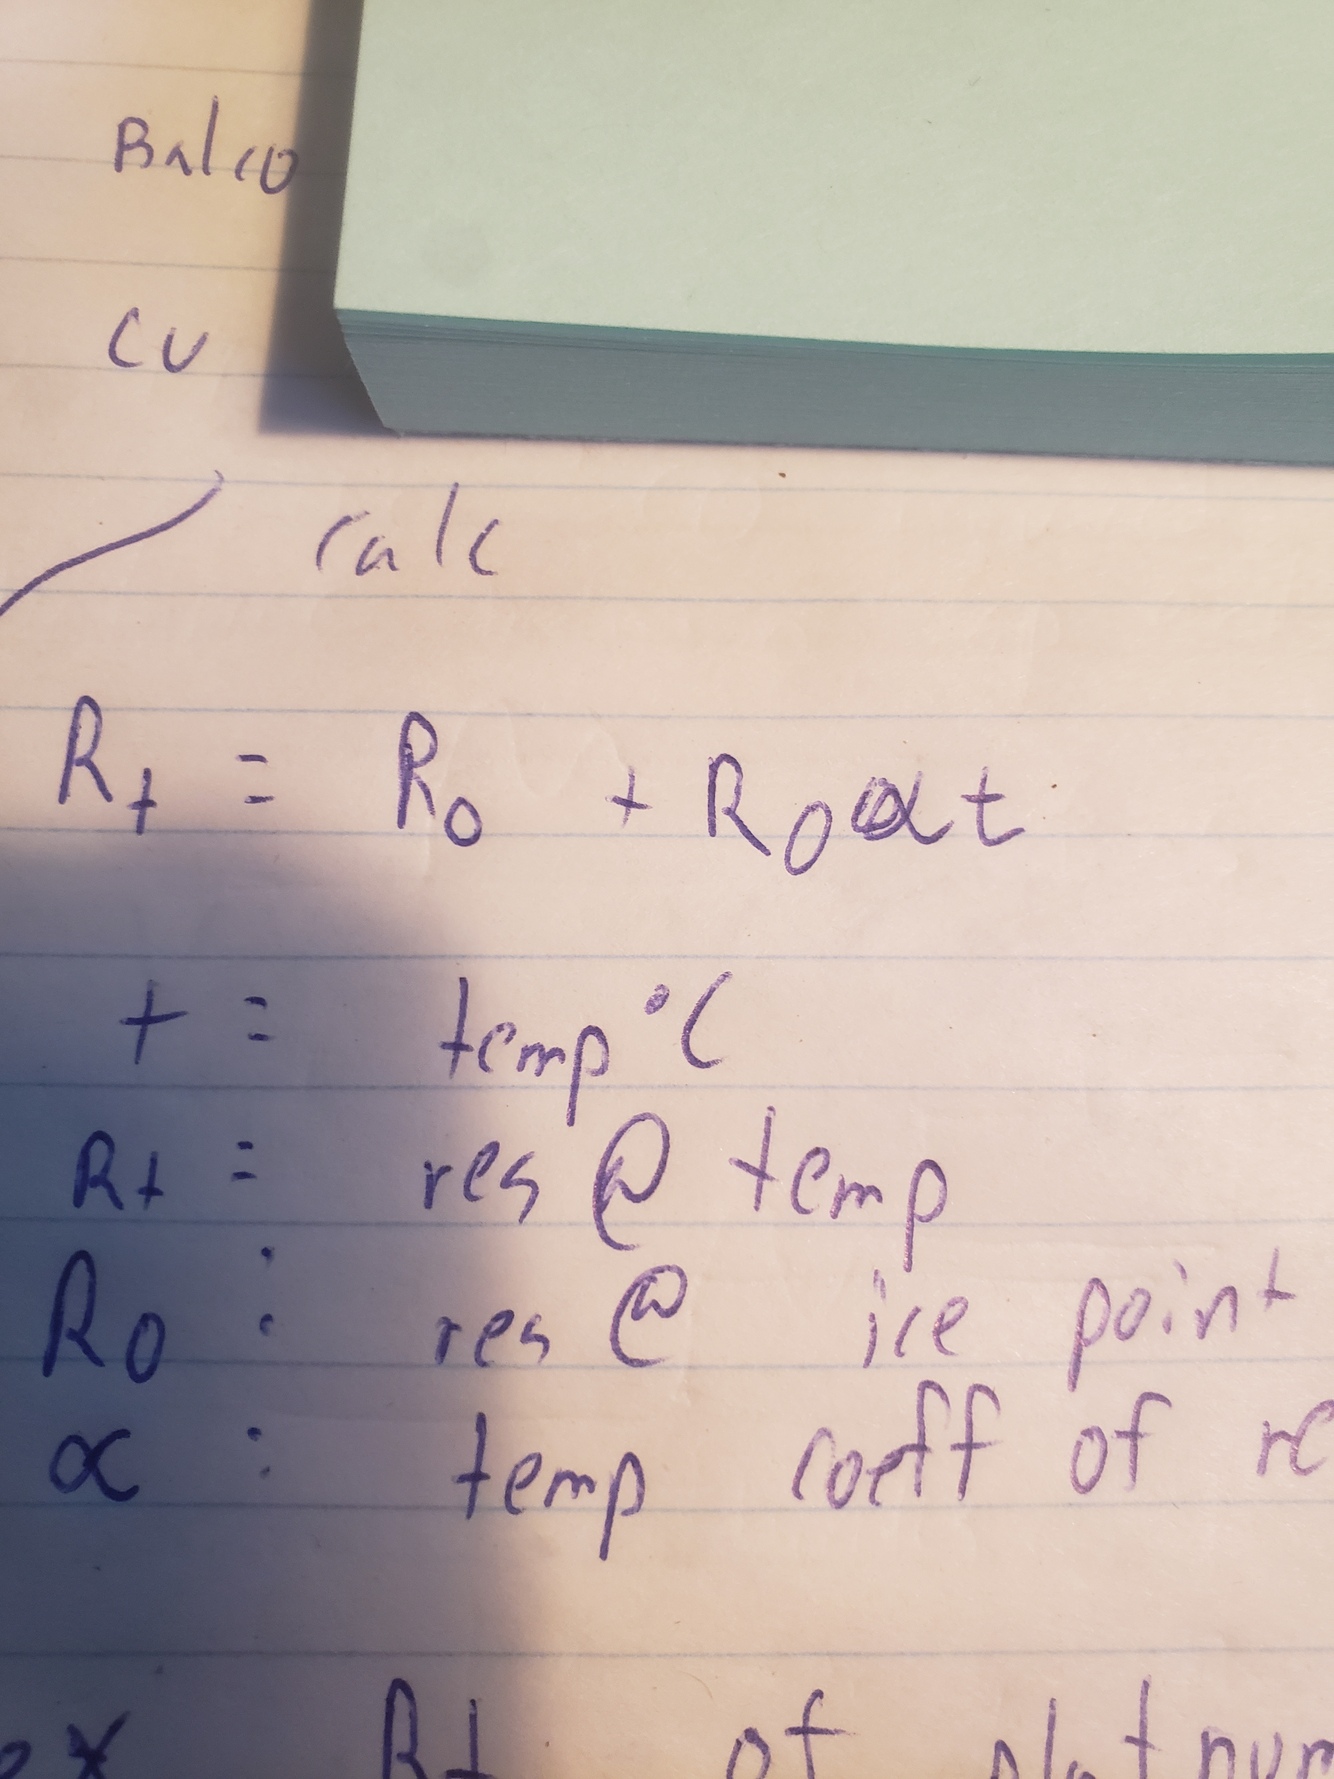 Balco
Cu
calc
Rt = R0 + R0αt
t = temp °C
Rt = res @ temp
R0 : res @ ice point
α : temp coeff of re
ex Rt of platnum